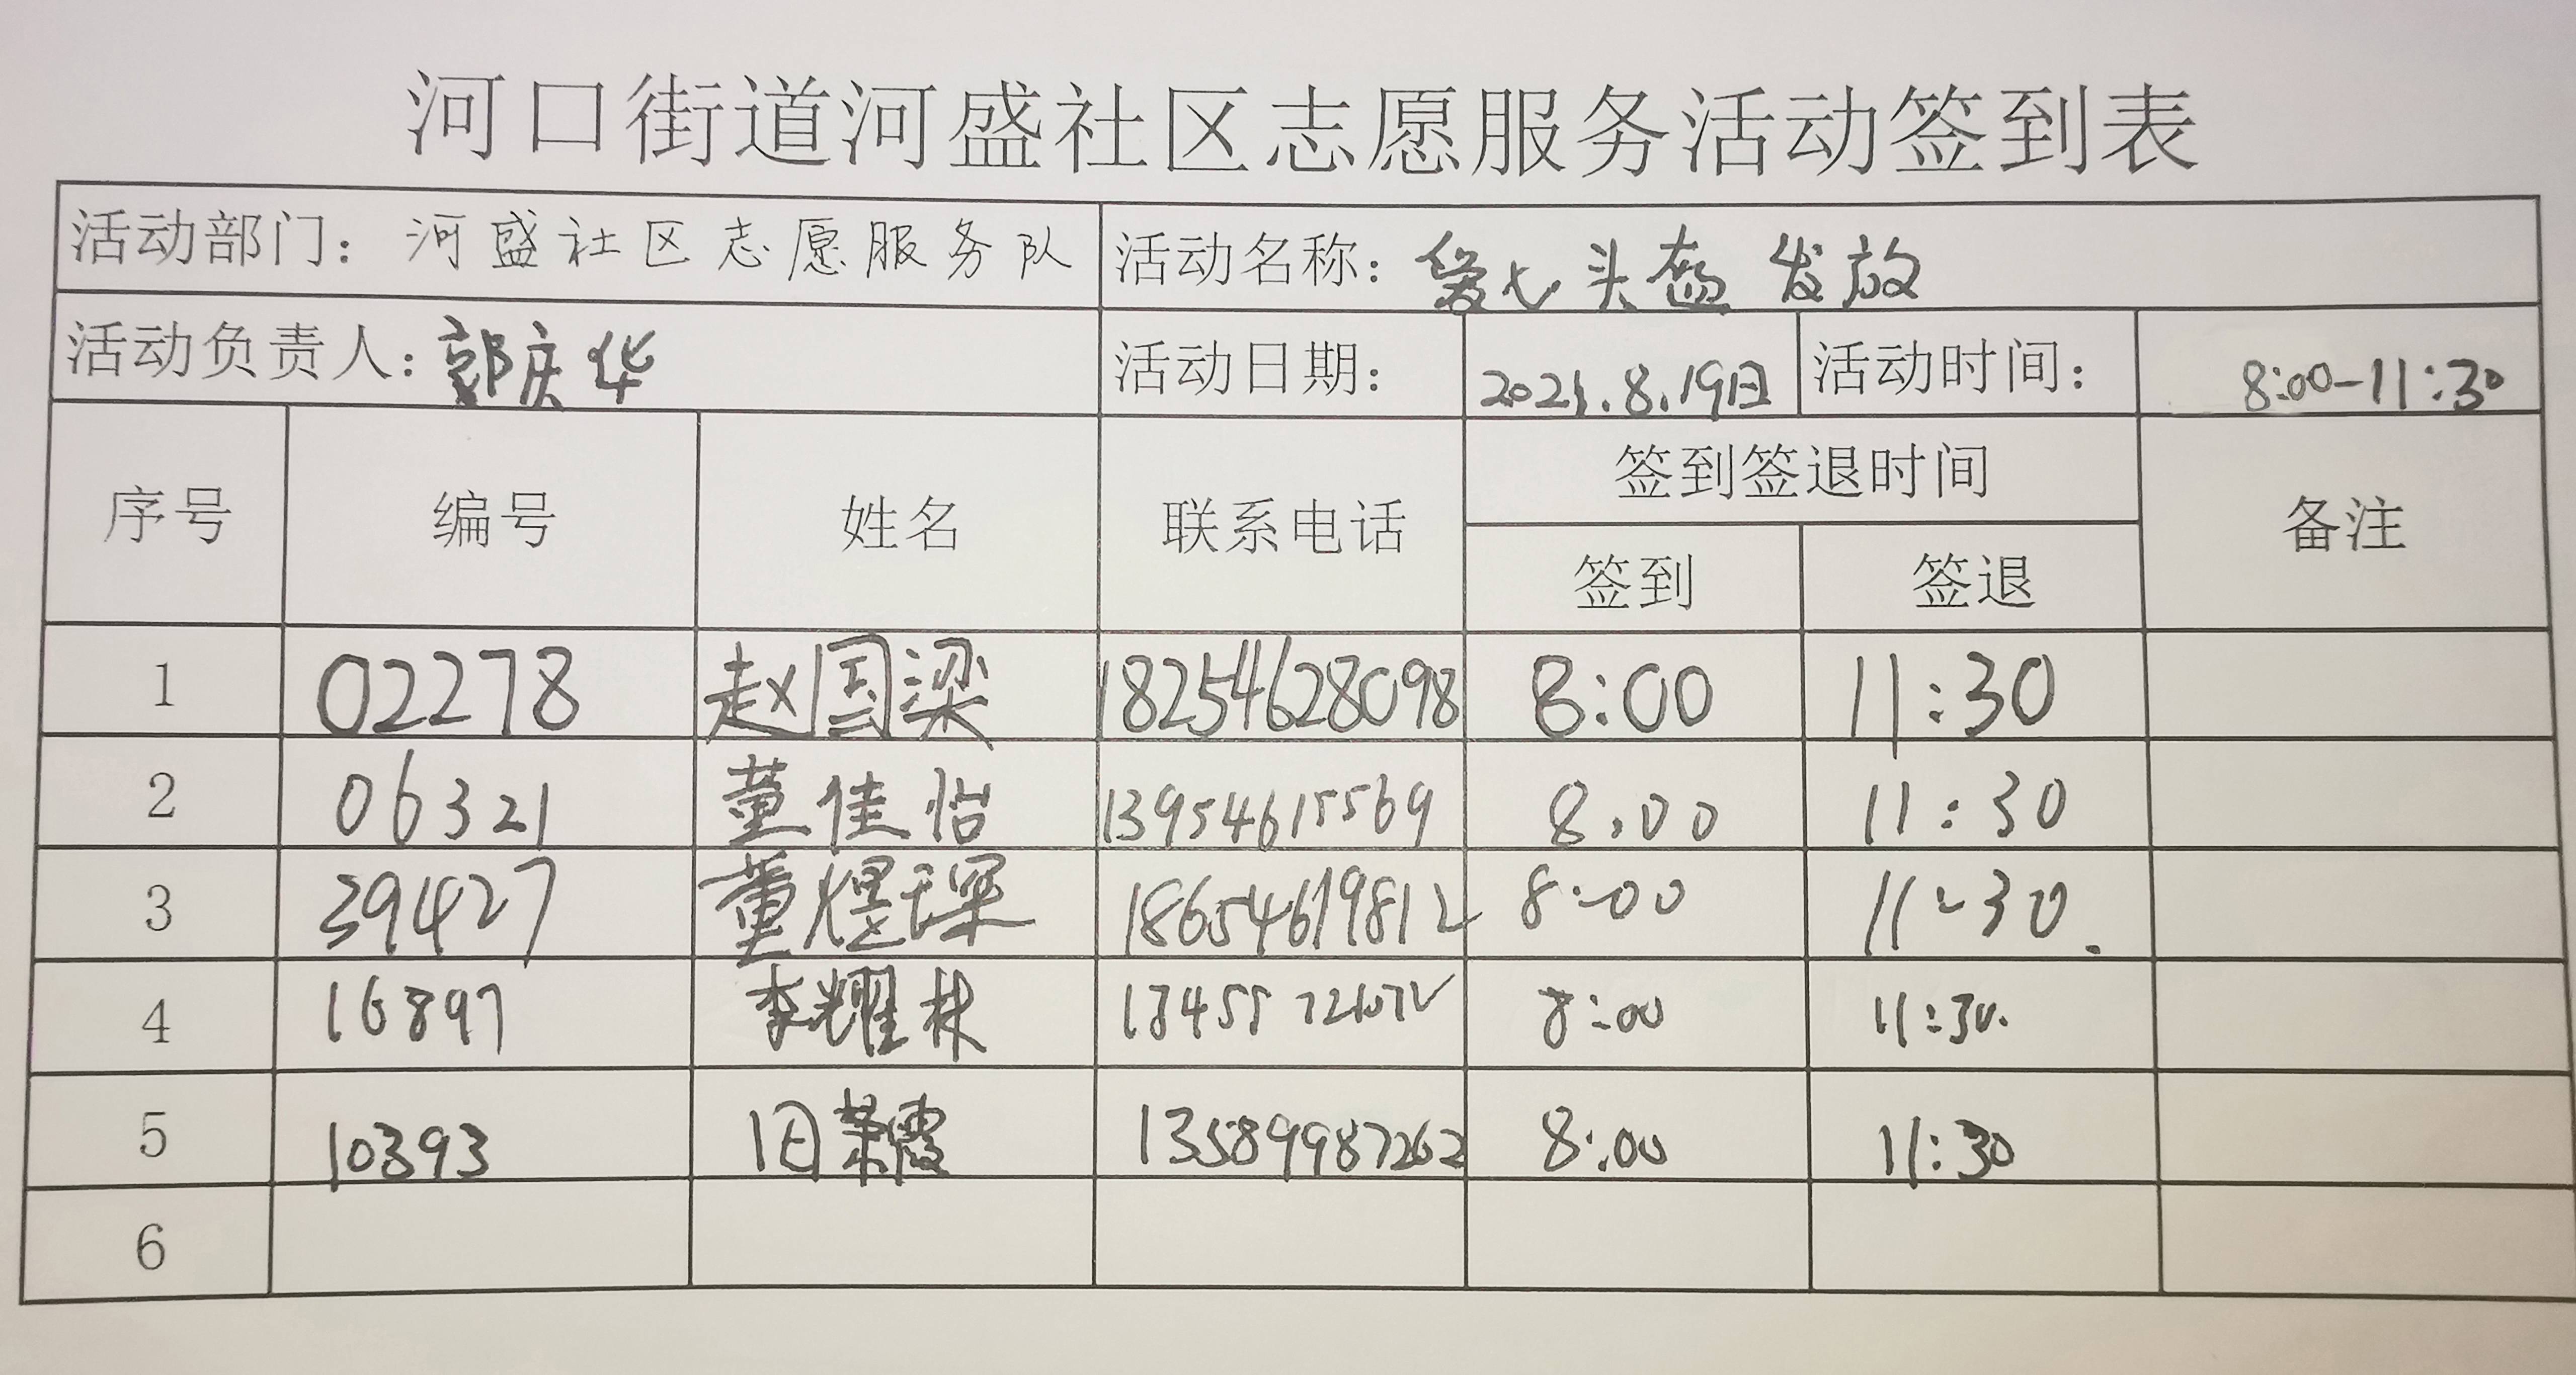 河口街道河盛社区志愿服务活动签到表
活动部门：河盛社区志愿服务队 活动名称：爱心头盔发放
活动负责人：郭庆华 活动日期： 2021.8.19日 活动时间： 8:00-11:30
序号 编号 姓名 联系电话 签到签退时间 备注
签到 签退
1 02278 赵国梁 18254628098 8:00 11:30
2 06321 董佳怡 13954615569 8:00 11:30
3 39427 董煜琛 18654619812 8:00 11:30
4 16897 李耀林 8:00 11:30
5 10393 13589987262 8:00 11:30
6